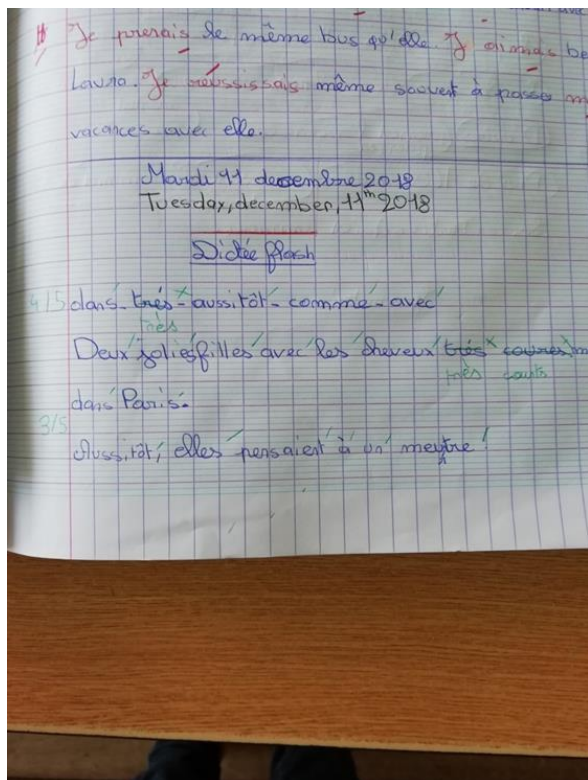 Je prenais le même bus qu'elle. J'aimais be
Laura. Je réussissais même souvent à passer m
vacances avec elle.
Mardi 11 decembre 2018
Tuesday, december, 11th 2018
Dictée flash
4/5 dans - trés - aussitôt - comme - avec
très
Deux jolies filles avec les cheveux trés coures m
très courts
dans Paris.
3/5
Aussitôt, elles pensaient à un meurtre!